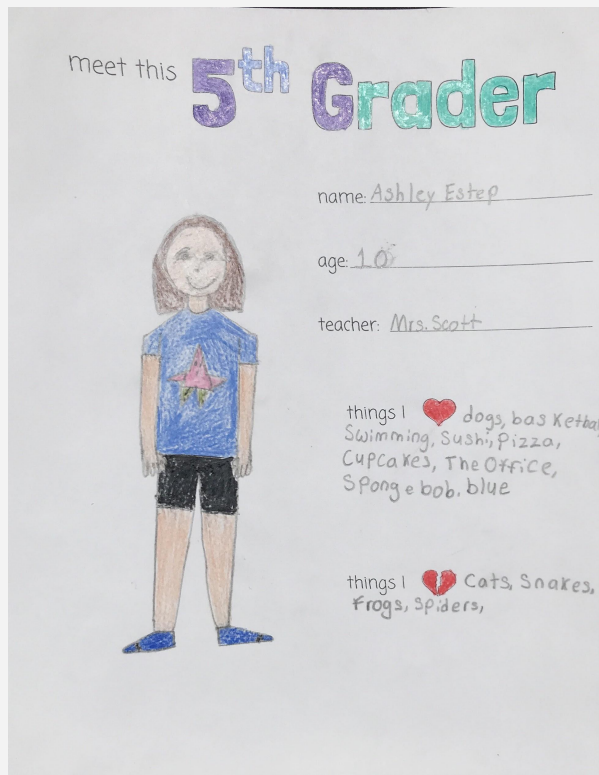 meet this 5th Grader
name: Ashley Estep
age: 10
teacher: Mrs. Scott
things I dogs, basketba
Swimming, Sushi, Pizza,
Cupcakes, The Office,
Spongebob, blue
things I Cats, Snakes,
Frogs, Spiders,